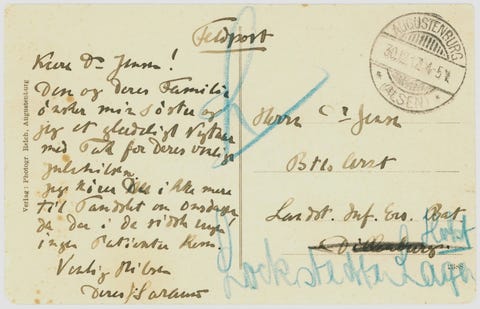 Feldpost
AUGUSTENBURG
30.12.17. 4-5N.
* (ALSEN) *
Kære Dr Jensen!
Dem og deres Familie
ønsker min Søster og
jeg et glædeligt Nytaar
med Tak for Deres venlige
Julehilsen.
Jeg kører ikke mere
til Tandslet om Onsdagen
da der i de sidste
ingen Patienter kom.
Venlig Hilsen
Deres
Herrn Dr Jensen
Btls Arzt
Landst. Inf. Ers. Bat
Dillenburg
Lockstedter Lager
Holst
Verlag: Photogr. Reich, Augustenburg